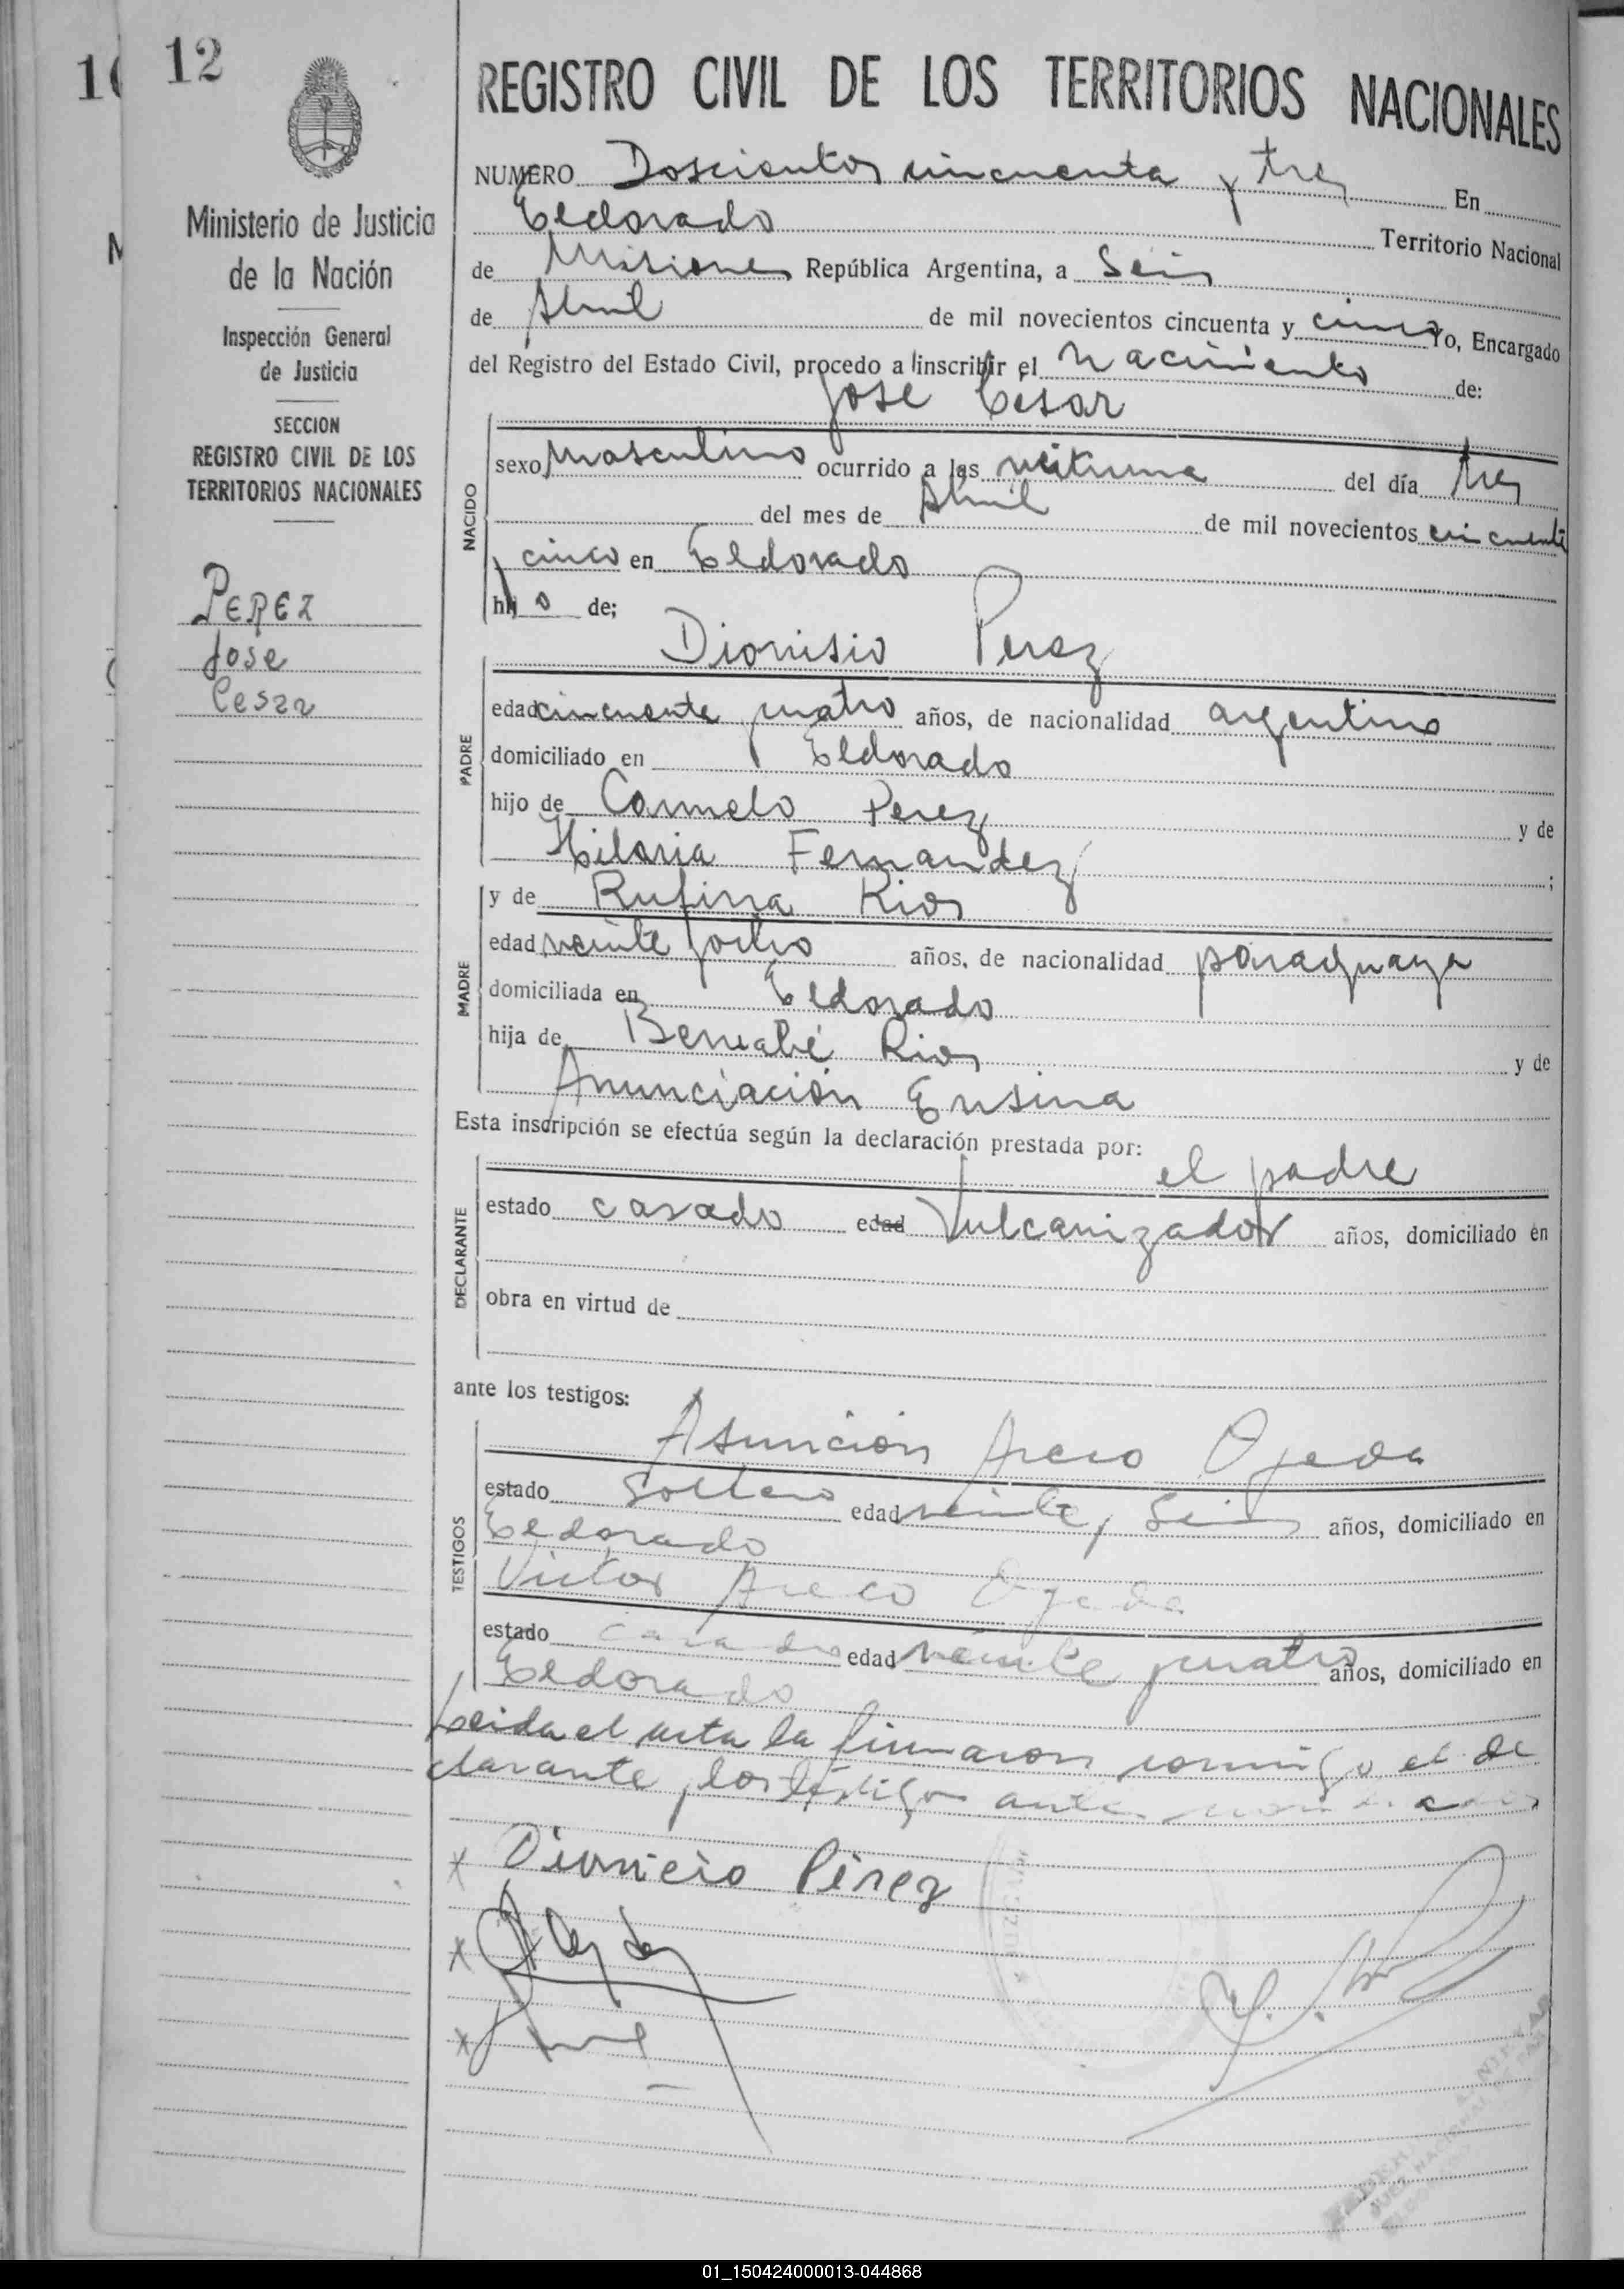 12
REGISTRO CIVIL DE LOS TERRITORIOS NACIONALES
Ministerio de Justicia
de la Nación
Inspección General
de Justicia
SECCION
REGISTRO CIVIL DE LOS
TERRITORIOS NACIONALES
PEREZ
Jose
Cesar
NUMERO Doscientos cincuenta y tres En
Eldorado Territorio Nacional
de Misiones República Argentina, a Seis
de Abril de mil novecientos cincuenta y cinco Yo, Encargado
del Registro del Estado Civil, procedo a inscribir el nacimiento de:
Jose Cesar
NACIDO
sexo masculino ocurrido a las veituna del día tres
del mes de Abril de mil novecientos cincuenta
y cinco en Eldorado
hijo de;
Dionisio Perez
PADRE
edad cincuenta y cuatro años, de nacionalidad argentino
domiciliado en Eldorado
hijo de Carmelo Perez y de
Hilaria Fernandez ;
y de Rufina Rios
MADRE
edad veinte y ocho años, de nacionalidad paraguaya
domiciliada en Eldorado
hija de Bernabé Rios y de
Anunciación Ensina
Esta inscripción se efectúa según la declaración prestada por:
el padre
DECLARANTE
estado casado edad Vulcanizador años, domiciliado en
obra en virtud de
ante los testigos:
Asuncion Areco Ojeda
TESTIGOS
estado Soltero edad veinte y Seis años, domiciliado en
Eldorado
Victor Areco Ojeda
estado casado edad veinte y cuatro años, domiciliado en
Eldorado
Leida el acta la firmaron conmigo el de
clarante y los testigos antes nombrados
x Dionicio Pérez
x
x
01_150424000013-044868